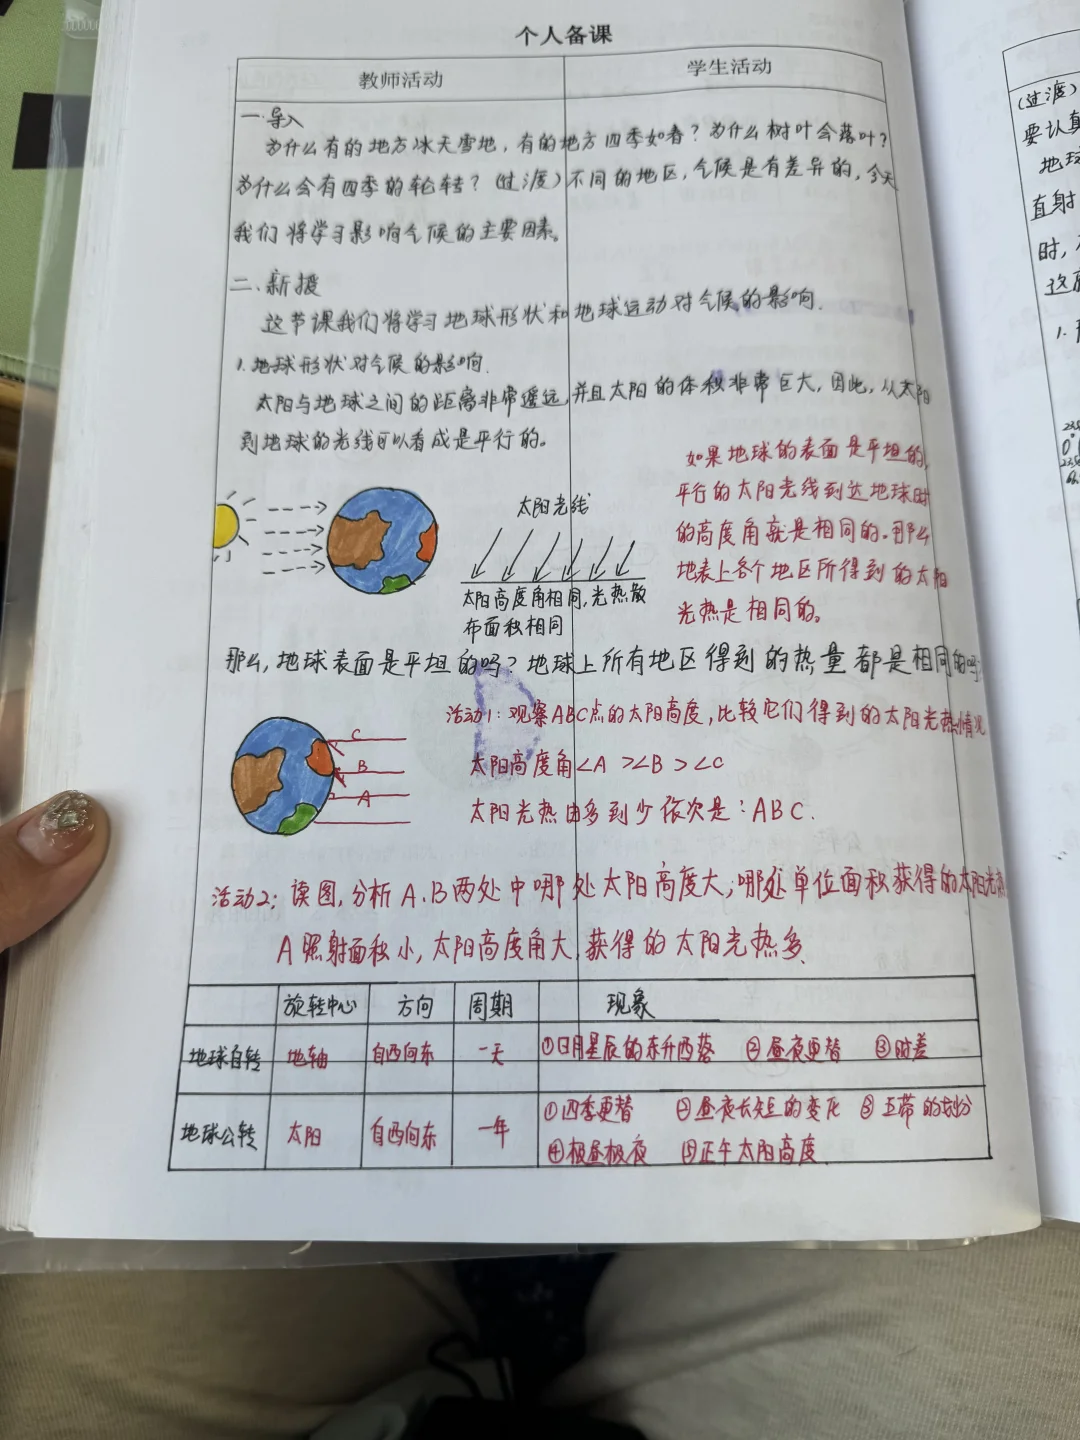 个人备课
教师活动
学生活动
一.导入
为什么有的地方冰天雪地，有的地方四季如春？为什么树叶会落叶？
为什么会有四季的轮转？（过渡）不同的地区，气候是有差异的，今天
我们将学习影响气候的主要因素。
二、新授
这节课我们将学习地球形状和地球运动对气候的影响.
1.地球形状对气候的影响.
太阳与地球之间的距离非常遥远，并且太阳的体积非常巨大，因此，从太阳
到地球的光线可以看成是平行的。
如果地球的表面是平坦的,
平行的太阳光线到达地球时
的高度角就是相同的。那么
地表上各个地区所得到的太阳
光热是相同的。
太阳光线
太阳高度角相同,光热散
布面积相同
那么,地球表面是平坦的吗？地球上所有地区得到的热量都是相同的吗
活动1:观察ABC点的太阳高度,比较它们得到的太阳光热情况
太阳高度角∠A>∠B>∠C
太阳光热由多到少依次是:ABC.
C
B
A
活动2;读图,分析A.B两处中哪处太阳高度大,哪处单位面积获得的太阳光热
A照射面积小,太阳高度角大,获得的太阳光热多.
旋转中心 方向 周期 现象
地球自转 地轴 自西向东 一天 ①日月星辰的东升西落 ②昼夜更替 ③时差
地球公转 太阳 自西向东 一年 ①四季更替 ②昼夜长短的变化 ③五带的划分
④极昼极夜 ⑤正午太阳高度
(过渡)
要认真
地球
直射
时,
这
1.